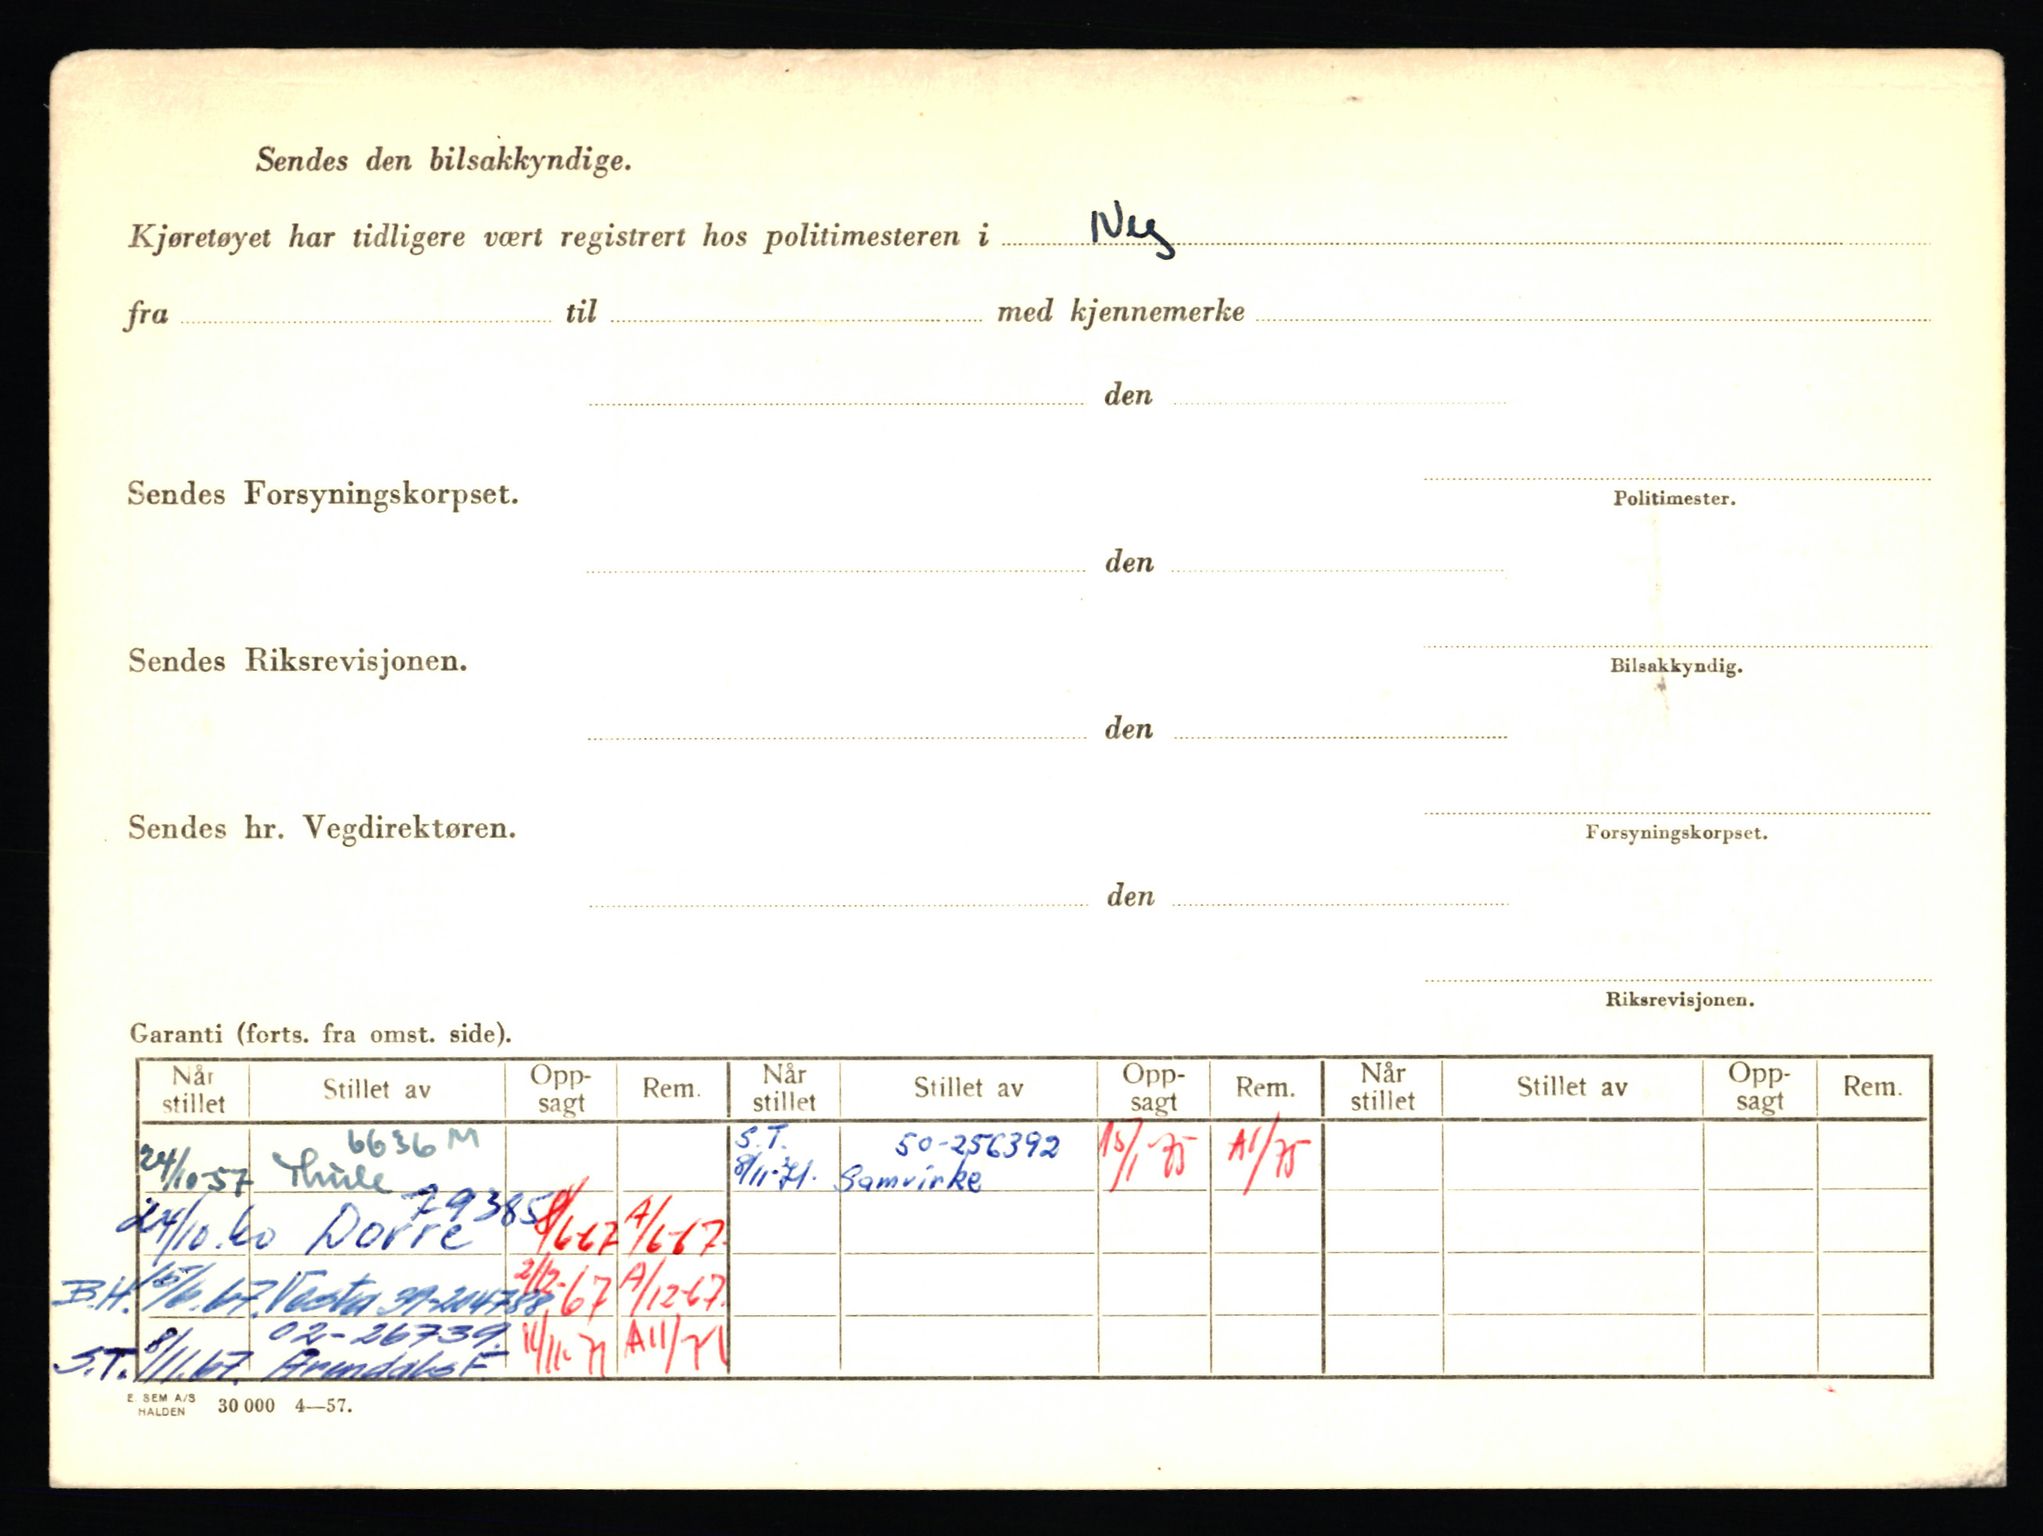 Sendes den bilsakkyndige.
Kjøretøyet har tidligere vært registrert hos politimesteren i Ny
fra til med kjennemerke
den
Sendes Forsyningskorpset.
Politimester.
den
Sendes Riksrevisjonen.
Bilsakkyndig.
den
Sendes hr. Vegdirektøren.
Forsyningskorpset.
den
Riksrevisjonen.
Garanti (forts. fra omst. side).
Når stillet Stillet av Opp-sagt Rem. Når stillet Stillet av Opp-sagt Rem. Når stillet Stillet av Opp-sagt Rem.
6636 M
24/10-57 Thule
S.T. 50-256392 15/1-75 A1/75
8/11-71. Samvirke
79385
24/10.60 Dovre 8/6-67 A/6-67.
B.H. 15/6.67. Vesta 39-204788 2/12-67 A/12-67.
02-26739.
S.T. 8/11.67. Arendals F. 11/11-71 A11/71
E. SEM A/S
HALDEN 30 000 4—57.